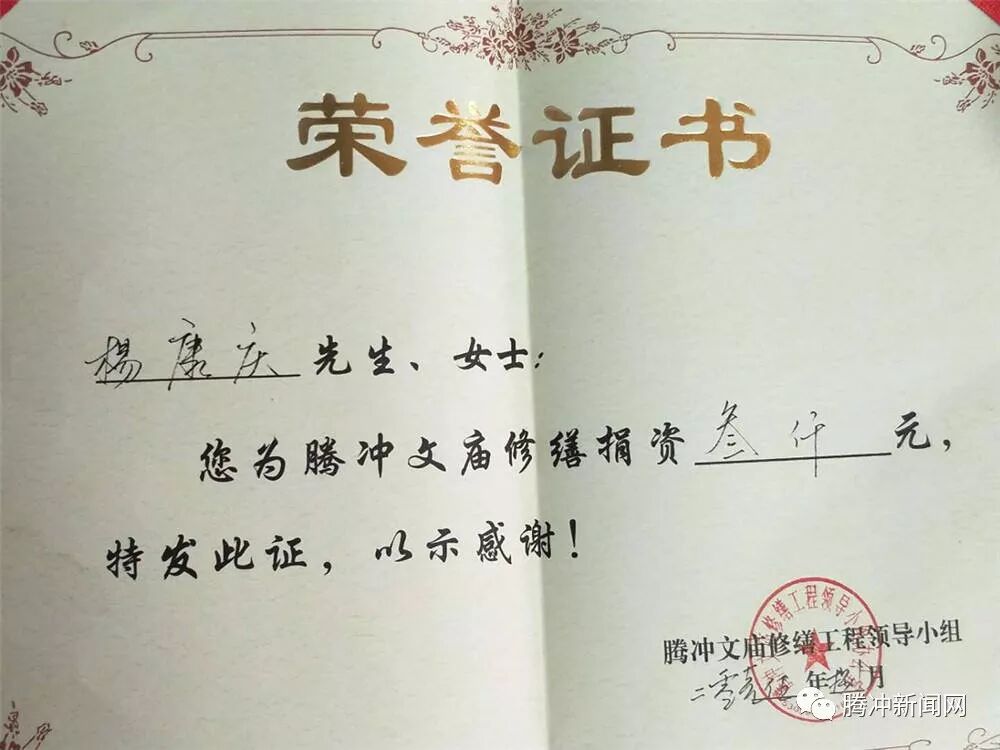 荣誉证书
楊康庆先生、女士：
您为腾冲文庙修缮捐资叁仟元，
特发此证，以示感谢！
修缮工程领导小
腾冲文庙修缮工程领导小组
二零壹伍年 月
腾冲新闻网